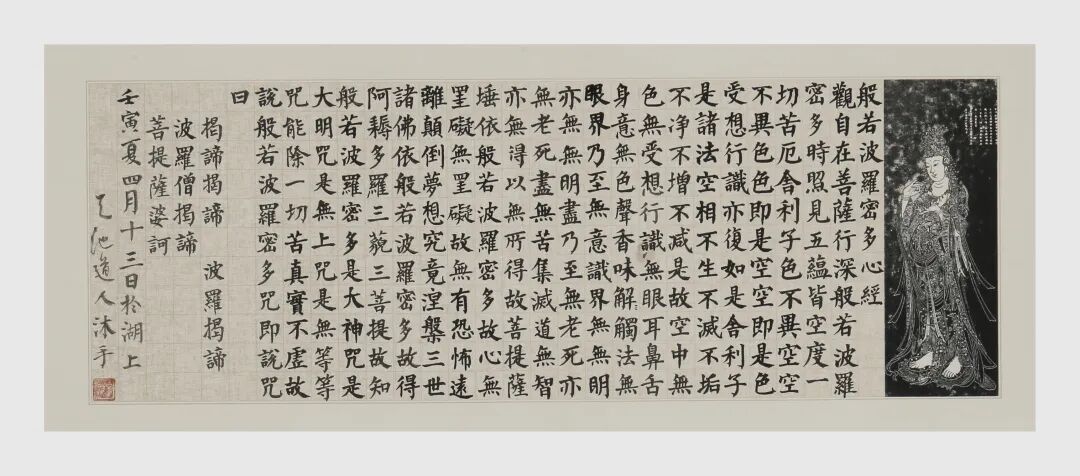 般若波羅密多心經
觀自在菩薩行深般若波羅
密多時照見五蘊皆空度一
切苦厄舍利子色不異空空
不異色色即是空空即是色
受想行識亦復如是舍利子
是諸法空相不生不滅不垢
不净不增不减是故空中無
色無受想行識無眼耳鼻舌
身意無色聲香味解觸法無
眼界乃至無意識界無無明
亦無無明盡乃至無老死亦
無老死盡無苦集滅道無智
亦無得以無所得故菩提薩
埵依般若波羅密多故心無
罣礙無罣礙故無有恐怖遠
離顛倒夢想究竟涅槃三世
諸佛依般若波羅密多故得
阿耨多羅三藐三菩提故知
般若波羅密多是大神咒是
大明咒是無上咒是無等等
咒能除一切苦真實不虛故
說般若波羅密多咒即說咒
曰
揭諦揭諦 波羅揭諦
波羅僧揭諦
菩提薩婆訶
壬寅夏四月十三日於湖上
池道人沐手